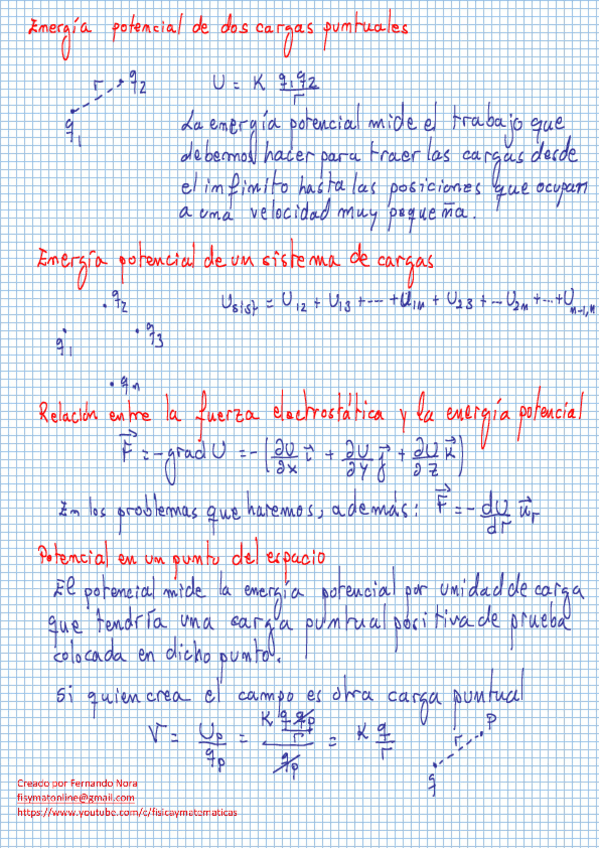 Energía potencial de dos cargas puntuales
r q2 U = K q1q2/r
q1
La energía potencial mide el trabajo que
debemos hacer para traer las cargas desde
el infinito hasta las posiciones que ocupan
a una velocidad muy pequeña.
Energía potencial de un sistema de cargas
q2 Usist = U12 + U13 + --- + U1n + U23 + -- U2n + -- + Un-1,n
q1 q3
qn
Relación entre la fuerza electrostática y la energía potencial
F⃗ = -grad U = -(∂U/∂x i⃗ + ∂U/∂y j⃗ + ∂U/∂z k⃗)
En los problemas que haremos, además: F⃗ = -dU/dr u⃗r
Potencial en un punto del espacio
El potencial mide la energía potencial por unidad de carga
que tendría una carga puntual positiva de prueba
colocada en dicho punto.
Si quien crea el campo es otra carga puntual
V = Up/qp = (K q qp/r)/qp = K q/r r P
q
Creado por Fernando Nora
fisymatonline@gmail.com
https://www.youtube.com/c/fisicaymatematicas